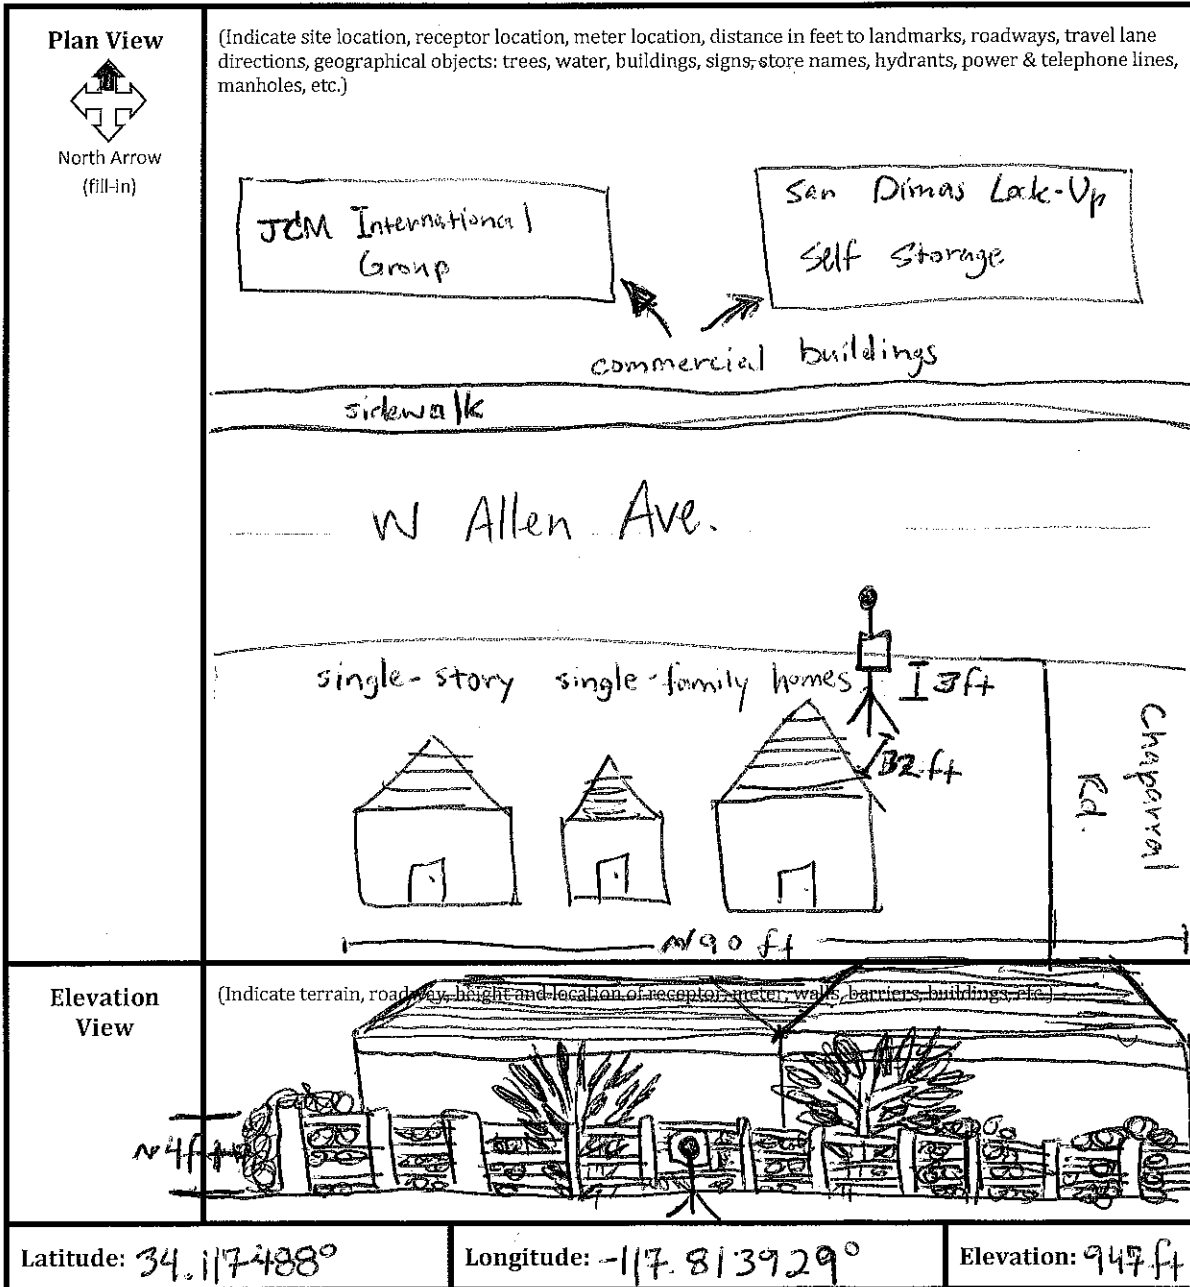 Plan View
North Arrow
(fill-in)
(Indicate site location, receptor location, meter location, distance in feet to landmarks, roadways, travel lane
directions, geographical objects: trees, water, buildings, signs, store names, hydrants, power & telephone lines,
manholes, etc.)
JCM International
Group
San Dimas Lock-Up
Self Storage
commercial buildings
sidewalk
W Allen Ave.
single-story single-family homes
3ft
32ft
Chaparral
Rd.
~90 ft
Elevation
View
(Indicate terrain, roadway, height and location of receptor, meter, walls, barriers, buildings, etc.)
~4ft
Latitude: 34.117488°
Longitude: -117.813929°
Elevation: 947ft